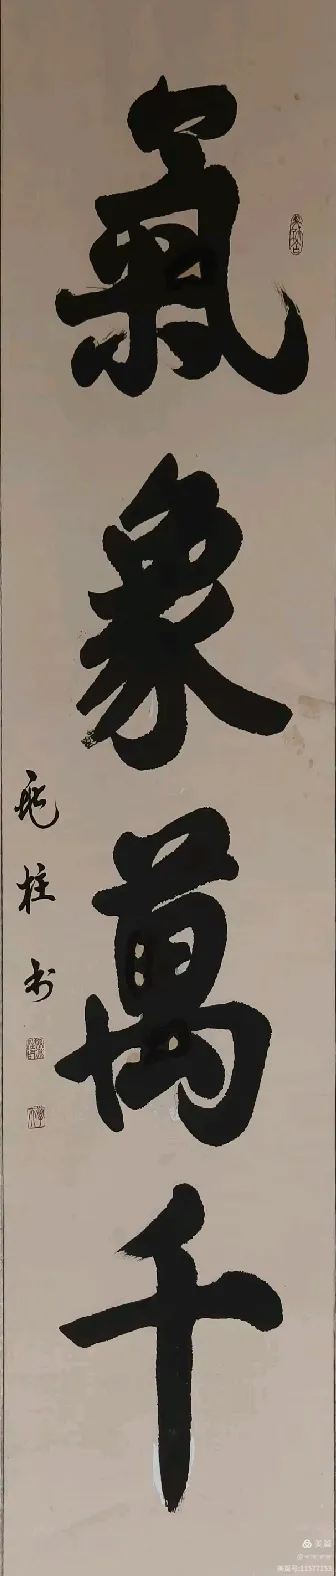 氣象萬千
兆柱书
美篇
美篇号:11577153